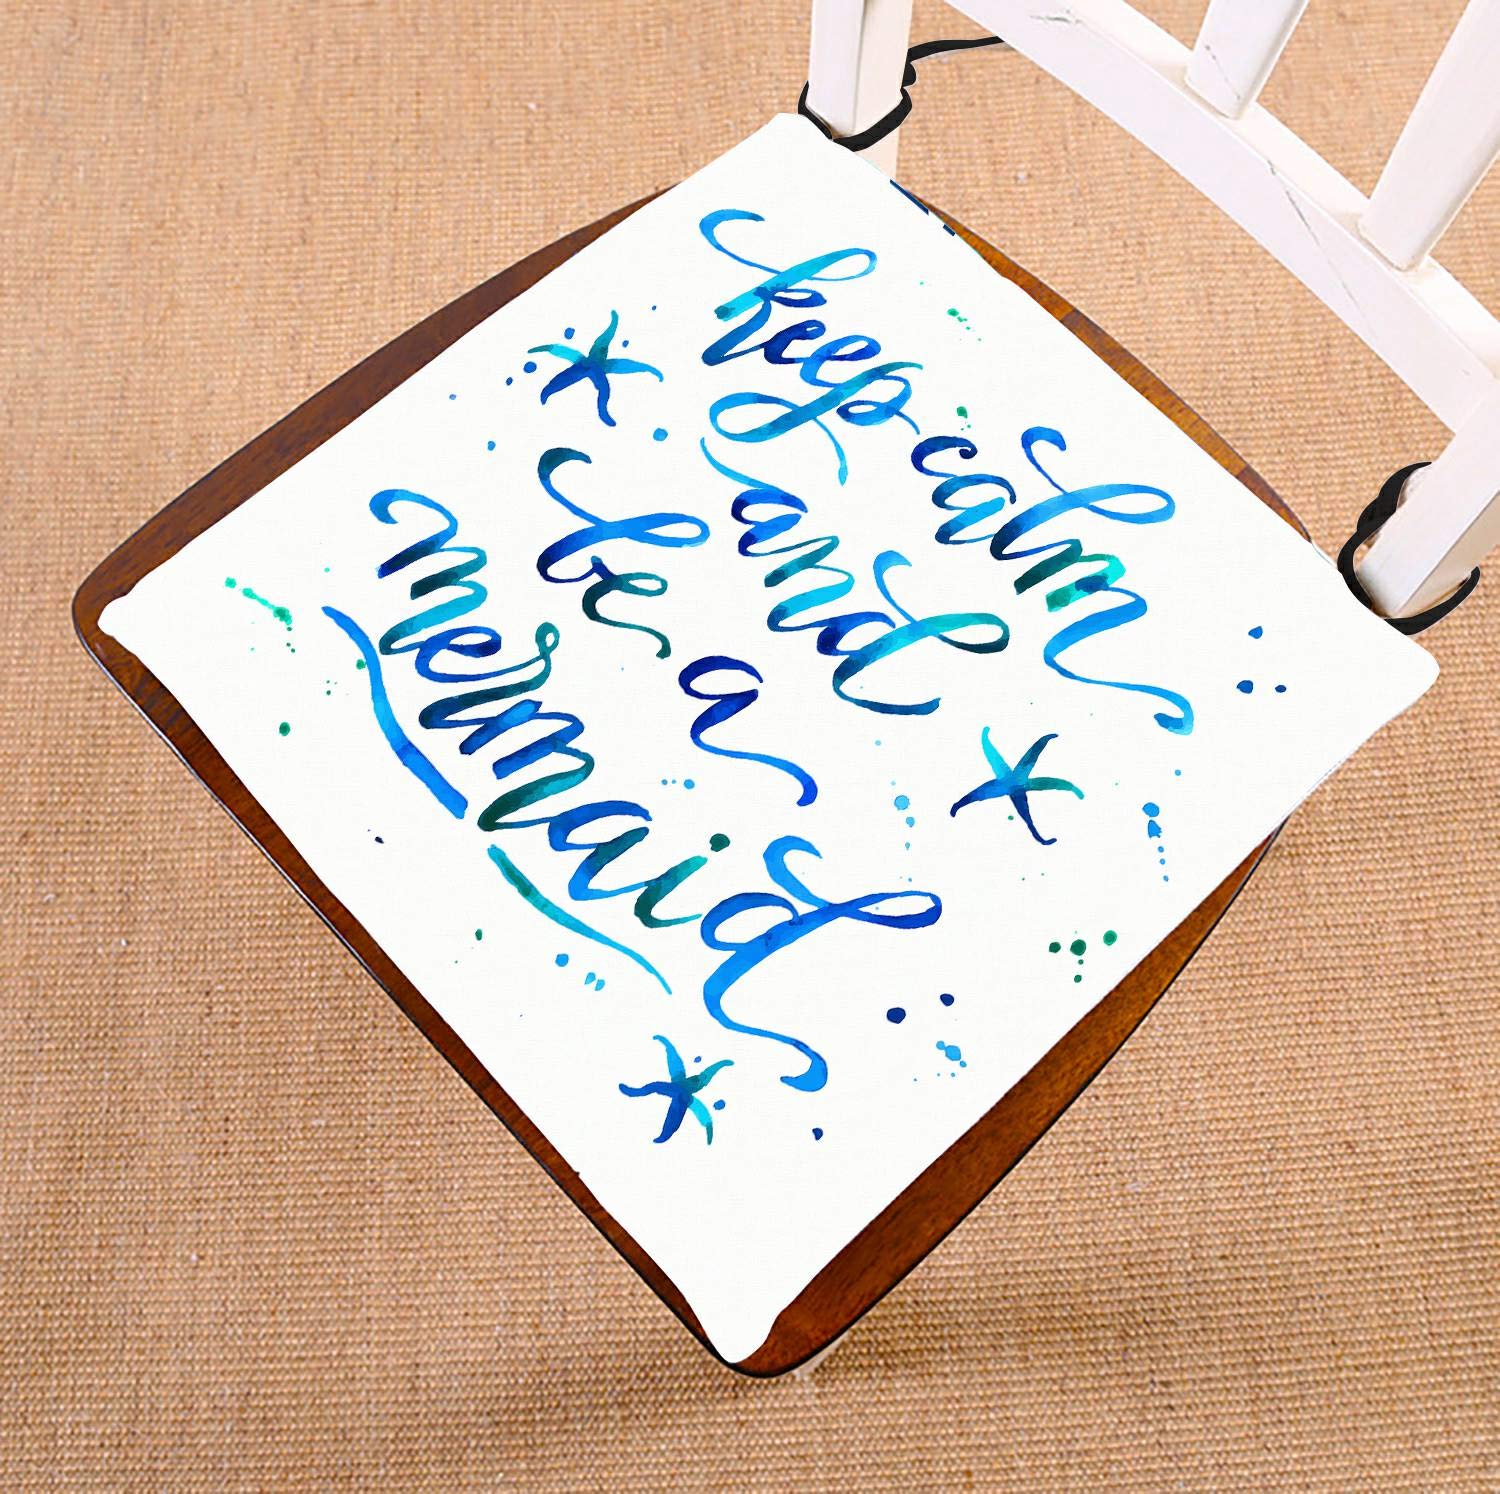 keep calm
and
be a
mermaid